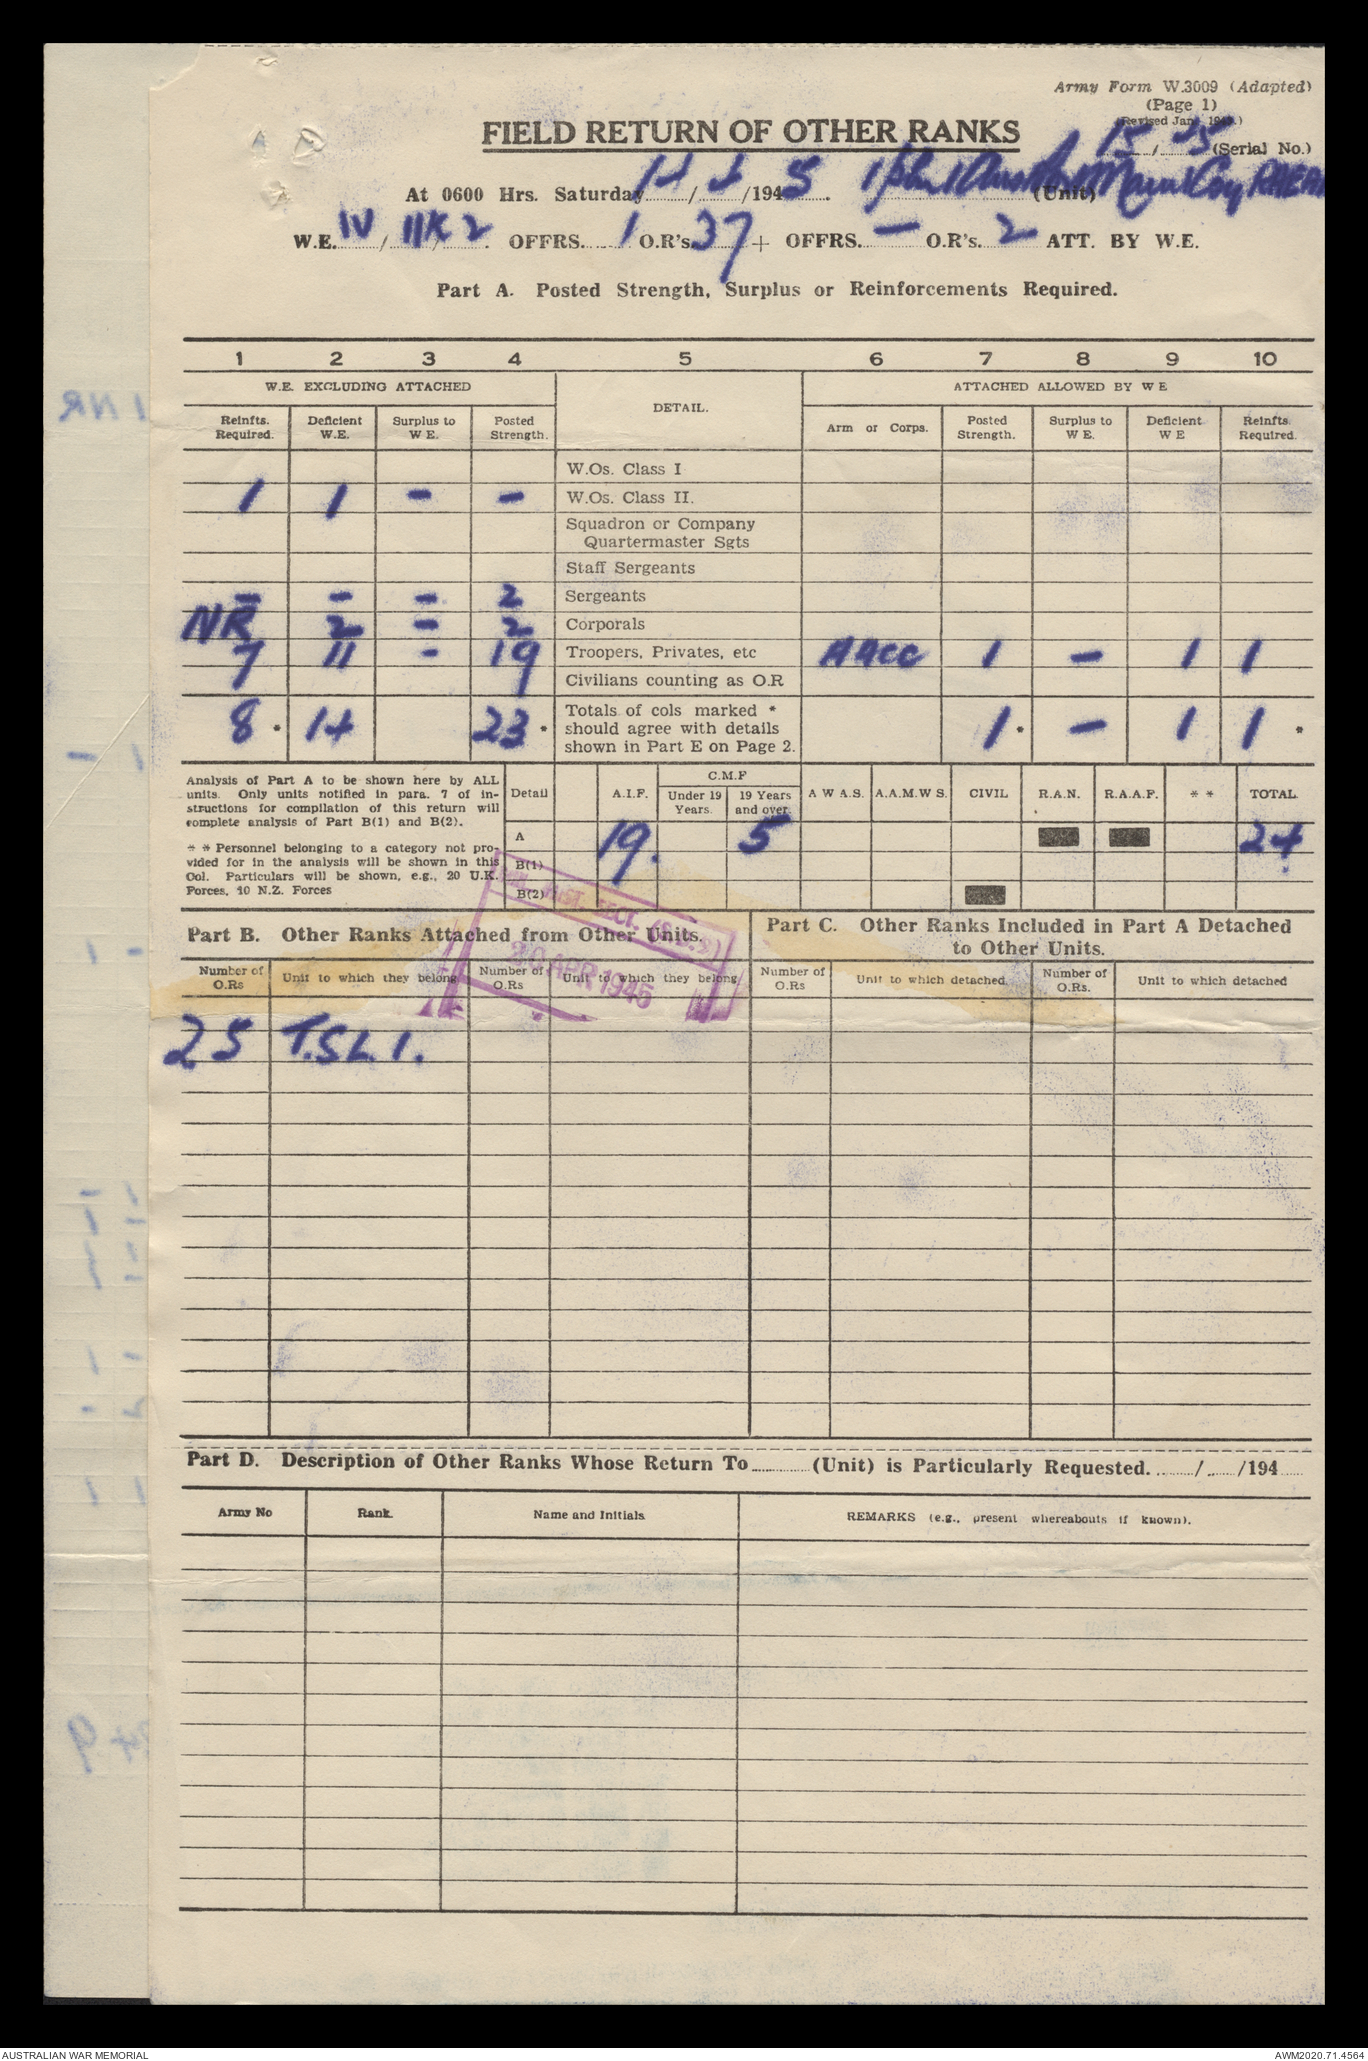 Army Form W.3009 (Adapted)
(Page 1)
(Revised Jan. 194 .)
15 / 45 (Serial No.)
FIELD RETURN OF OTHER RANKS
At 0600 Hrs. Saturday 14 / 4 /1945. (Unit)
W.E. IV / IIK / 2. OFFRS. 1 O.R's. 37 + OFFRS. — O.R's. 2 ATT. BY W.E.
Part A. Posted Strength, Surplus or Reinforcements Required.
1 2 3 4 5 6 7 8 9 10
W.E. EXCLUDING ATTACHED DETAIL. ATTACHED ALLOWED BY W E
Reinfts. Required. Deficient W.E. Surplus to W E. Posted Strength. Arm or Corps. Posted Strength. Surplus to W E. Deficient W E Reinfts. Required.
W.Os. Class I
1 1 - - W.Os. Class II.
Squadron or Company
Quartermaster Sgts
Staff Sergeants
- - - 2 Sergeants
NR 2 - 2 Corporals
7 11 - 19 Troopers, Privates, etc AACC 1 - 1 1
Civilians counting as O.R
8 * 14 23 * Totals of cols marked * should agree with details shown in Part E on Page 2. 1 * - 1 1 *
Analysis of Part A to be shown here by ALL
units. Only units notified in para. 7 of in-
structions for compilation of this return will
complete analysis of Part B(1) and B(2).
* * Personnel belonging to a category not pro-
vided for in the analysis will be shown in this
Col. Particulars will be shown, e.g., 20 U.K.
Forces, 10 N.Z. Forces
Detail A.I.F. C.M.F Under 19 Years. 19 Years and over. A W A S. A.A.M.W S. CIVIL R.A.N. R.A.A.F. * * TOTAL
A 19. 5 24
B(1)
B(2)
20 APR 1945
Part B. Other Ranks Attached from Other Units.
Part C. Other Ranks Included in Part A Detached
to Other Units.
Number of O.Rs Unit to which they belong Number of O.Rs Unit to which they belong Number of O.Rs Unit to which detached Number of O.Rs. Unit to which detached
25 T.S.L.I.
Part D. Description of Other Ranks Whose Return To ............ (Unit) is Particularly Requested. ....../....../194......
Army No Rank. Name and Initials. REMARKS (e.g., present whereabouts if known).
AUSTRALIAN WAR MEMORIAL AWM2020.71.4564